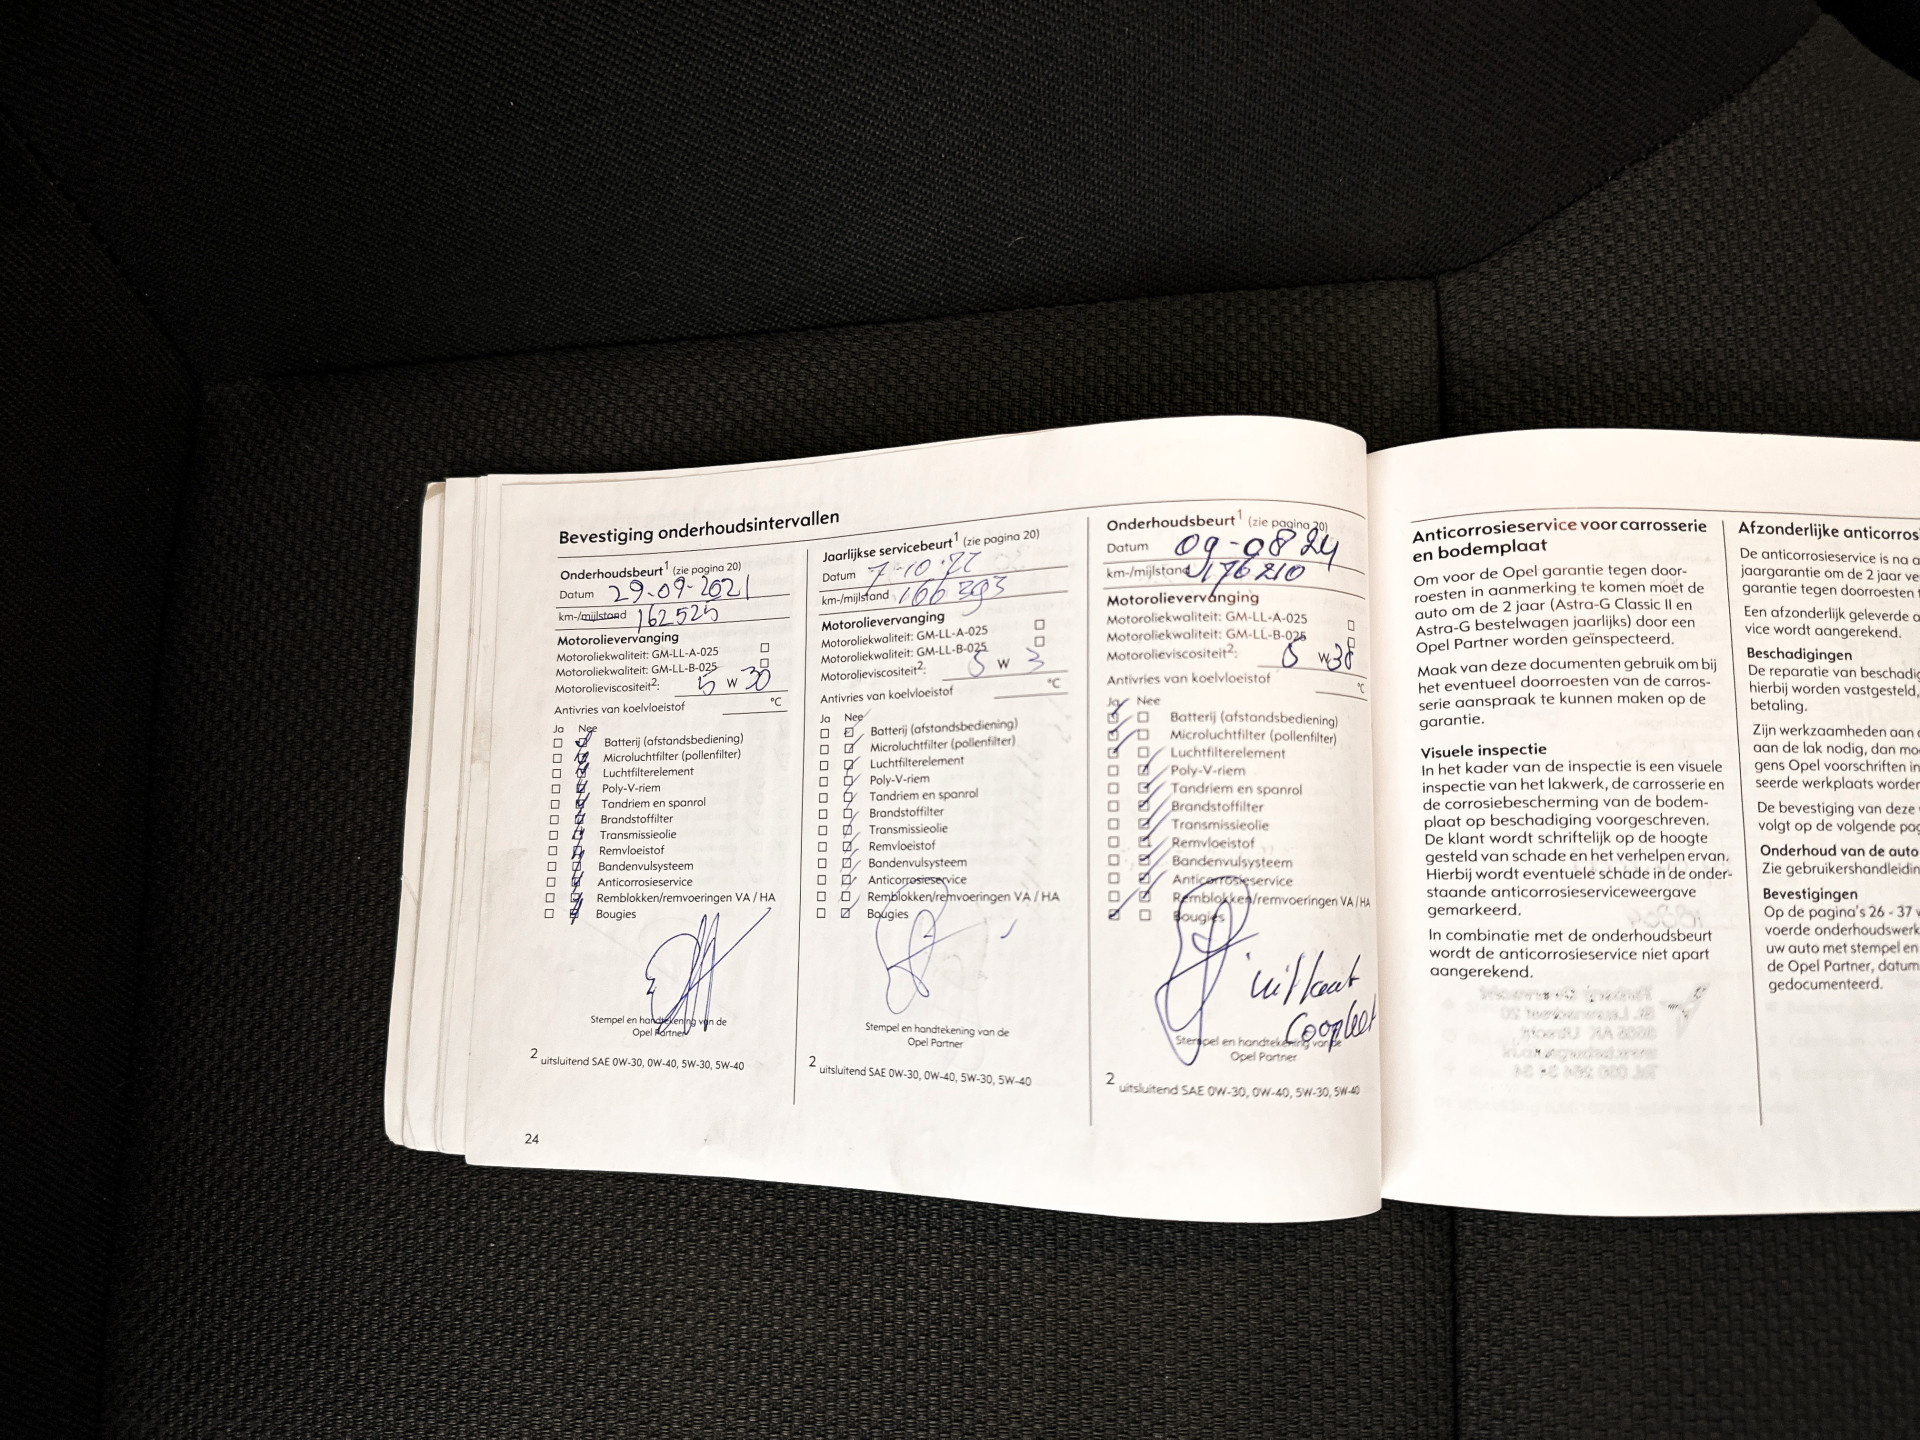 Bevestiging onderhoudsintervallen
Onderhoudsbeurt¹ (zie pagina 20)
Datum 29-09-2021
km-/mijlstand 162525
Motorolievervanging
Motoroliekwaliteit: GM-LL-A-025
Motoroliekwaliteit: GM-LL-B-025
Motorolieviscositeit²: 5 W 30
Antivries van koelvloeistof °C
Ja Nee
Batterij (afstandsbediening)
Microluchtfilter (pollenfilter)
Luchtfilterelement
Poly-V-riem
Tandriem en spanrol
Brandstoffilter
Transmissieolie
Remvloeistof
Bandenvulsysteem
Anticorrosieservice
Remblokken/remvoeringen VA / HA
Bougies
Stempel en handtekening van de
Opel Partner
2 uitsluitend SAE 0W-30, 0W-40, 5W-30, 5W-40
24
Jaarlijkse servicebeurt¹ (zie pagina 20)
Datum 7-10-22
km-/mijlstand 166393
Motorolievervanging
Motoroliekwaliteit: GM-LL-A-025
Motoroliekwaliteit: GM-LL-B-025
Motorolieviscositeit²: 5 W 3
Antivries van koelvloeistof °C
Ja Nee
Batterij (afstandsbediening)
Microluchtfilter (pollenfilter)
Luchtfilterelement
Poly-V-riem
Tandriem en spanrol
Brandstoffilter
Transmissieolie
Remvloeistof
Bandenvulsysteem
Anticorrosieservice
Remblokken/remvoeringen VA / HA
Bougies
Stempel en handtekening van de
Opel Partner
2 uitsluitend SAE 0W-30, 0W-40, 5W-30, 5W-40
Onderhoudsbeurt¹ (zie pagina 20)
Datum 09-08 24
km-/mijlstand 176210
Motorolievervanging
Motoroliekwaliteit: GM-LL-A-025
Motoroliekwaliteit: GM-LL-B-025
Motorolieviscositeit²: 5 W 30
Antivries van koelvloeistof °C
Ja Nee
Batterij (afstandsbediening)
Microluchtfilter (pollenfilter)
Luchtfilterelement
Poly-V-riem
Tandriem en spanrol
Brandstoffilter
Transmissieolie
Remvloeistof
Bandenvulsysteem
Anticorrosieservice
Remblokken/remvoeringen VA / HA
Bougies
Stempel en handtekening van de
Opel Partner
2 uitsluitend SAE 0W-30, 0W-40, 5W-30, 5W-40
Anticorrosieservice voor carrosserie
en bodemplaat
Om voor de Opel garantie tegen door-
roesten in aanmerking te komen moet de
auto om de 2 jaar (Astra-G Classic II en
Astra-G bestelwagen jaarlijks) door een
Opel Partner worden geïnspecteerd.
Maak van deze documenten gebruik om bij
het eventueel doorroesten van de carros-
serie aanspraak te kunnen maken op de
garantie.
Visuele inspectie
In het kader van de inspectie is een visuele
inspectie van het lakwerk, de carrosserie en
de corrosiebescherming van de bodem-
plaat op beschadiging voorgeschreven.
De klant wordt schriftelijk op de hoogte
gesteld van schade en het verhelpen ervan.
Hierbij wordt eventuele schade in de onder-
staande anticorrosieserviceweergave
gemarkeerd.
In combinatie met de onderhoudsbeurt
wordt de anticorrosieservice niet apart
aangerekend.
Afzonderlijke anticorros
De anticorrosieservice is na a
jaargarantie om de 2 jaar ve
garantie tegen doorroesten
Een afzonderlijk geleverde a
vice wordt aangerekend.
Beschadigingen
De reparatie van beschadig
hierbij worden vastgesteld,
betaling.
Zijn werkzaamheden aan
aan de lak nodig, dan mo
gens Opel voorschriften in
seerde werkplaats worden
De bevestiging van deze
volgt op de volgende pag
Onderhoud van de auto
Zie gebruikershandleidin
Bevestigingen
Op de pagina's 26 - 37 v
voerde onderhoudswerk
uw auto met stempel en
de Opel Partner, datum
gedocumenteerd.